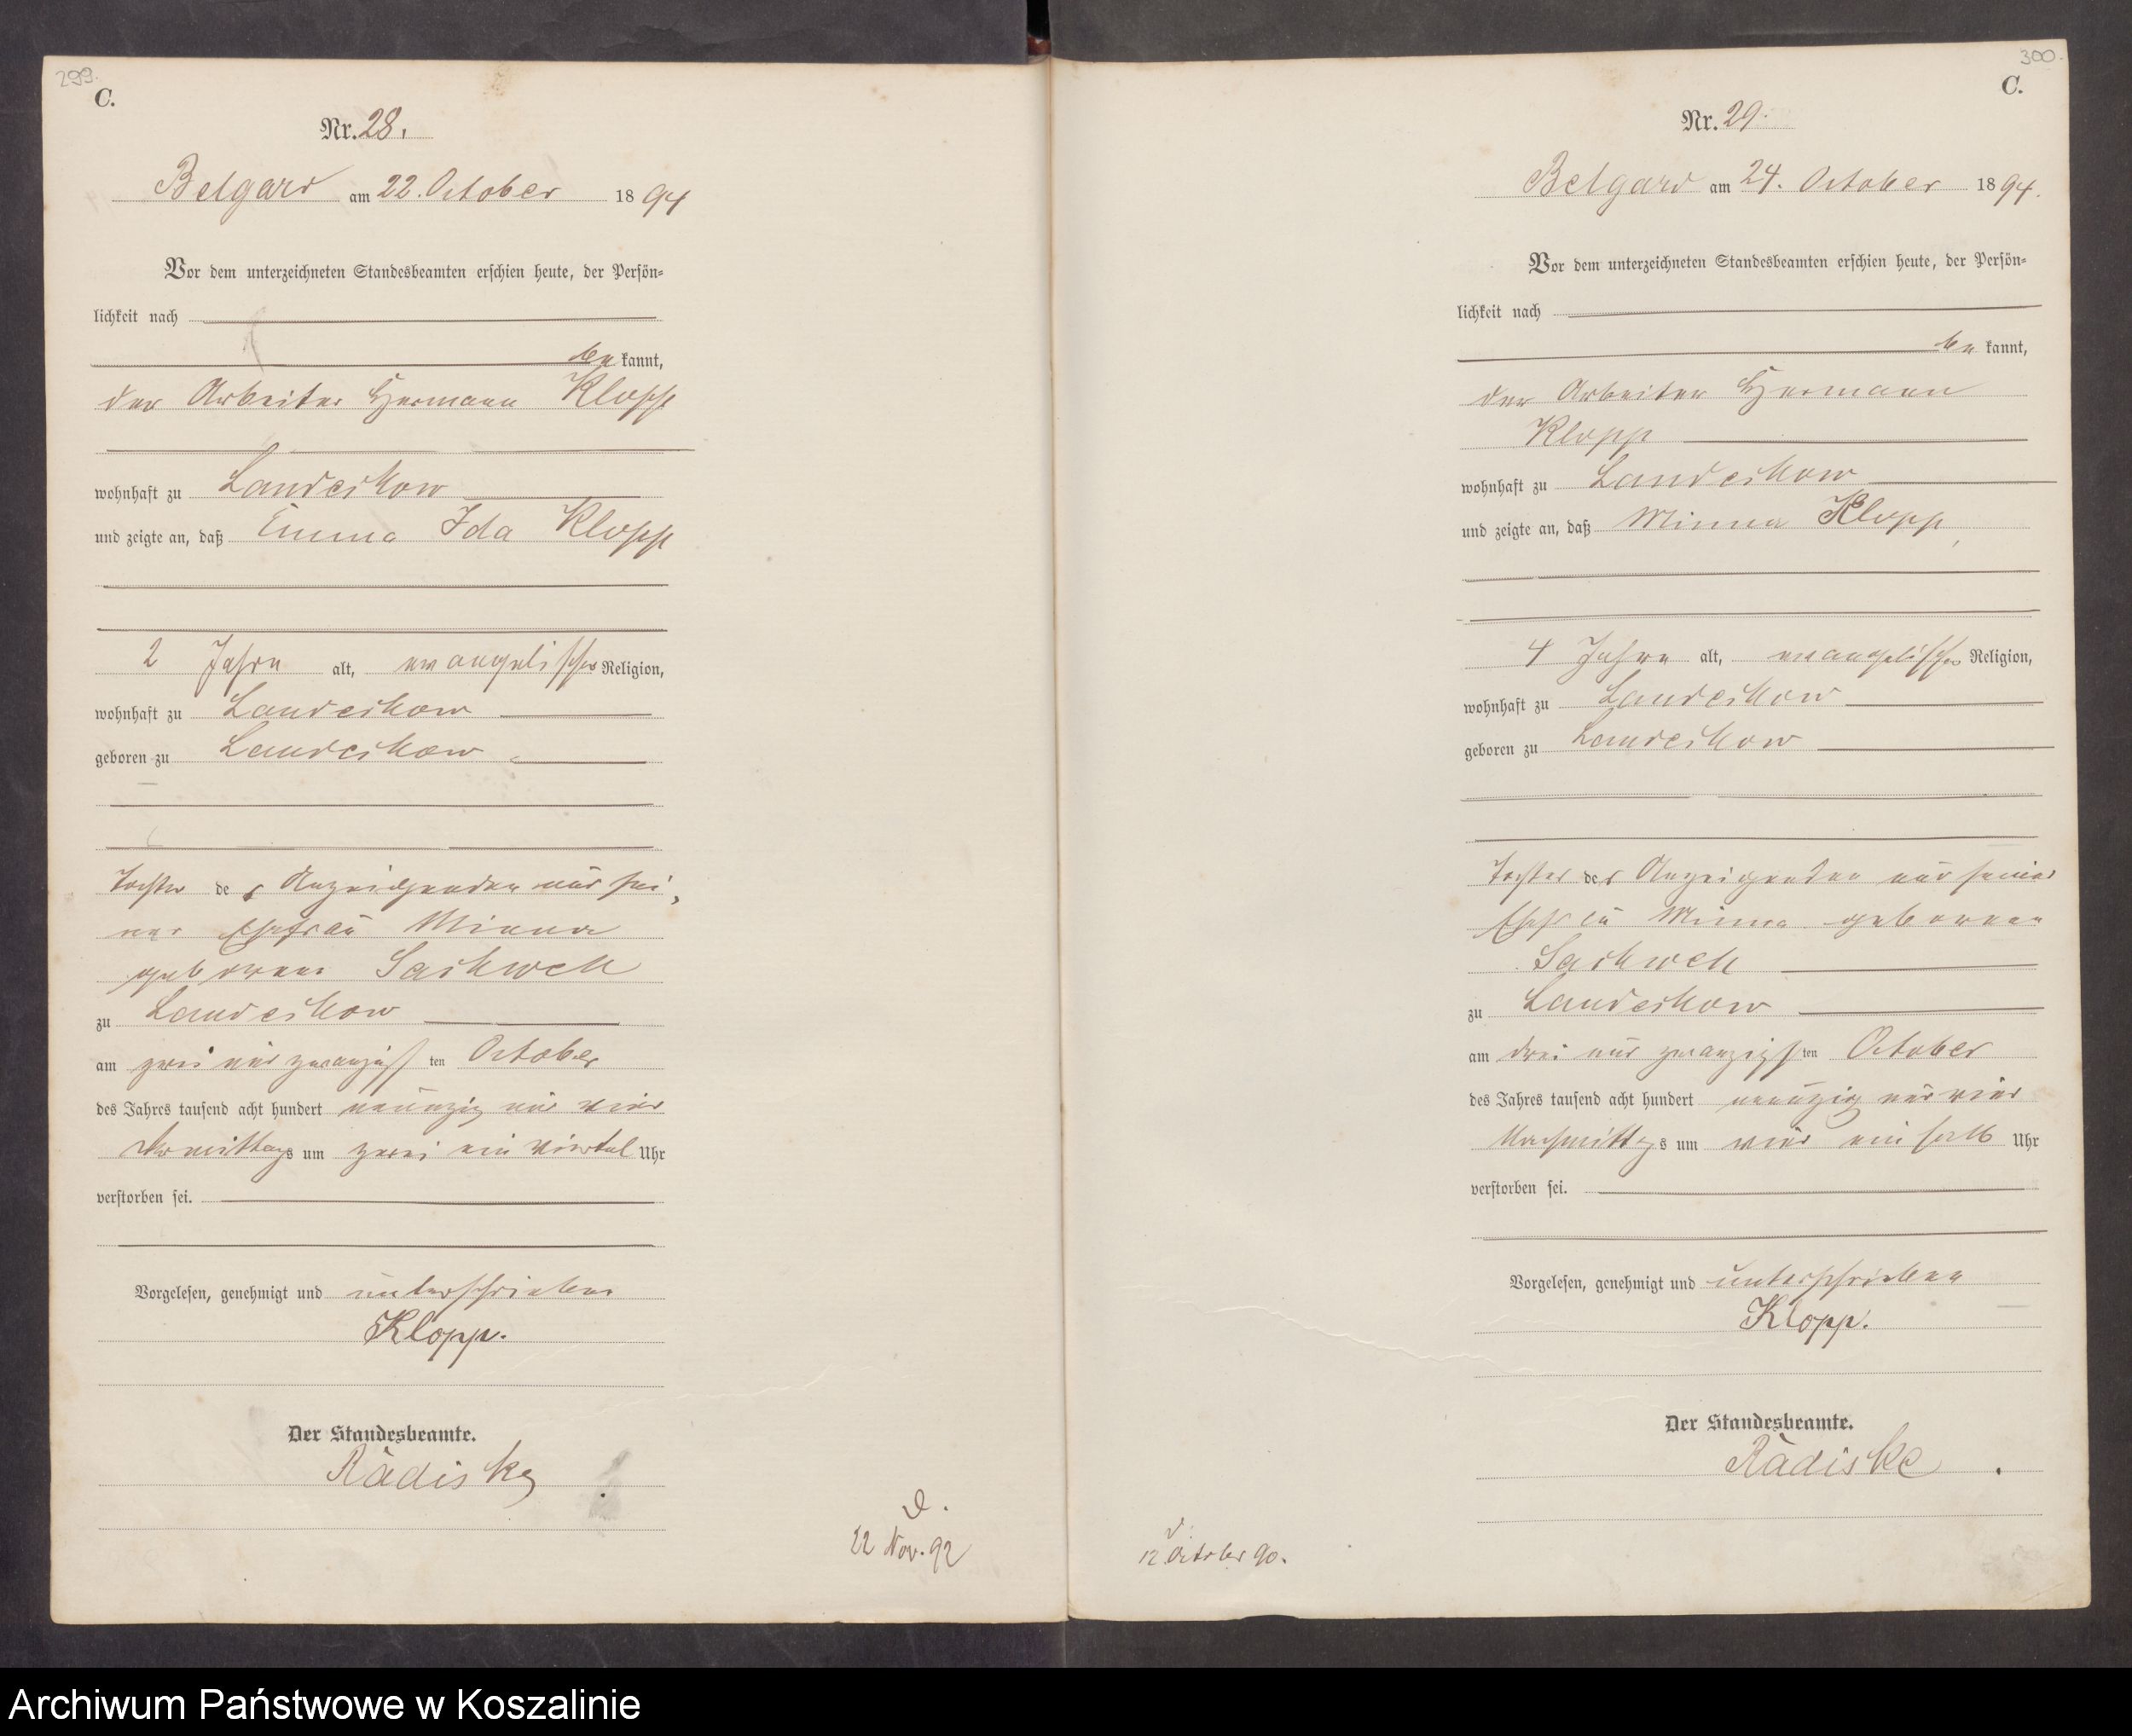 299.
C.
Nr. 28.
Belgard am 22. October 1894
Vor dem unterzeichneten Standesbeamten erschien heute, der Persön-
lichkeit nach
be kannt,
der Arbeiter Hermann Klopp
wohnhaft zu Landeskow
und zeigte an, daß Emma Ida Klopp
2 Jahre alt, evangelischer Religion,
wohnhaft zu Landeskow
geboren zu Landeskow
Tochter des Anzeigenden und sei-
ner Ehefrau Minna
geborene Saskweck
zu Landeskow
am zwei und zwanzigsten October
des Jahres tausend acht hundert neunzig und vier
Vormittags um zwei ein viertel Uhr
verstorben sei.
Vorgelesen, genehmigt und unterschrieben
Klopp.
Der Standesbeamte.
Rädiske
22 Nov. 92
300.
C.
Nr. 29.
Belgard am 24. October 1894.
Vor dem unterzeichneten Standesbeamten erschien heute, der Persön-
lichkeit nach
be kannt,
der Arbeiter Hermann
Klopp
wohnhaft zu Landeskow
und zeigte an, daß Minna Klopp,
4 Jahre alt, evangelischer Religion,
wohnhaft zu Landeskow
geboren zu Landeskow
Tochter des Anzeigenden und seiner
Ehefrau Minna geborenen
Saskweck
zu Landeskow
am drei und zwanzigsten October
des Jahres tausend acht hundert neunzig und vier
Nachmittags um vier ein halb Uhr
verstorben sei.
Vorgelesen, genehmigt und unterschrieben
Klopp.
Der Standesbeamte.
Rädiske
12 October 90.
Archiwum Państwowe w Koszalinie